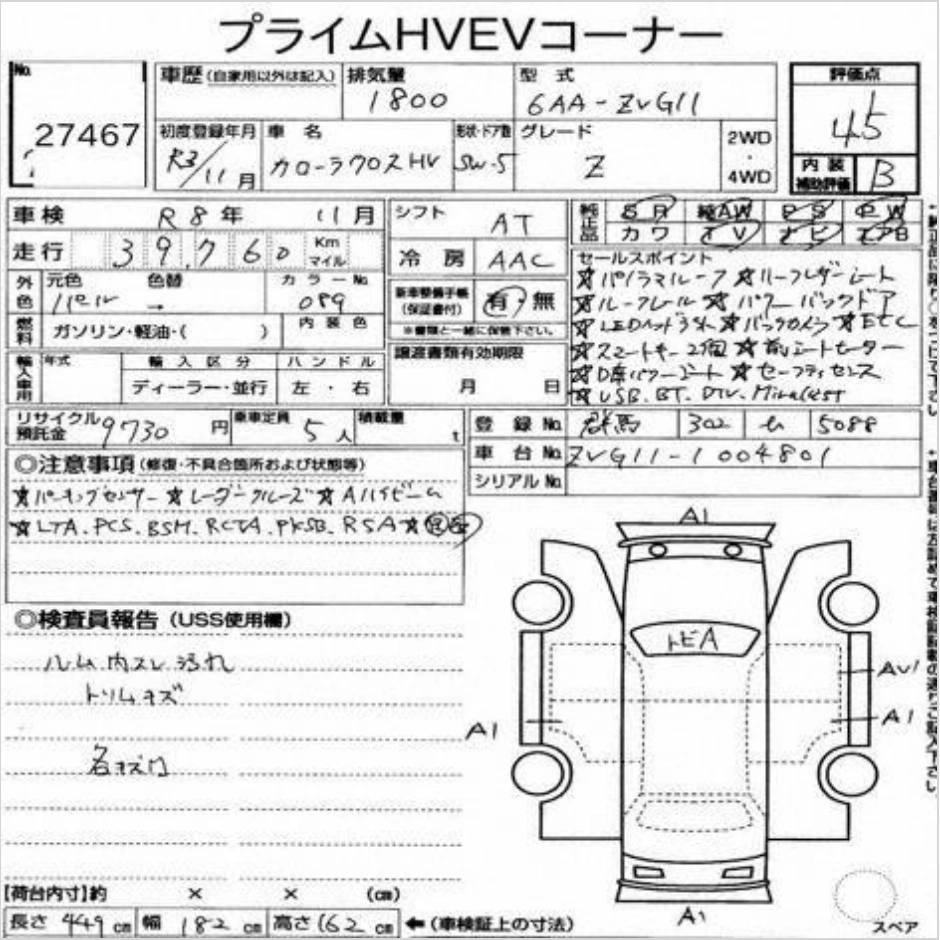 プライムHVEVコーナー
No. 27467
車歴(自家用以外は記入) 排気量 1800 型式 6AA-ZVG11 評価点 4.5
初度登録年月 R3/11月 車名 カローラクロスHV 形状・ドア数 SW-5 グレード Z 2WD・4WD 内装補助評価 B
車検 R8年 11月 シフト AT 純正品 SR 純AW PS PW
走行 39,760 Km マイル 冷房 AAC カワ TV ナビ エアB
外色 元色 パール 色替 → カラーNo 089 新車整備手帳(保証書付) 有・無
燃料 ガソリン・軽油・( ) 内装色 ※書類と一緒に保管下さい。
輸入車用 年式 輸入区分 ディーラー・並行 ハンドル 左・右 譲渡書類有効期限 月 日
セールスポイント
☆パノラマルーフ ☆ハーフレザーシート
☆ルーフレール ☆パワーバックドア
☆LEDヘッドライト ☆バックカメラ ☆ETC
☆スマートキー2個 ☆前シートヒーター
☆D席パワーシート ☆セーフティセンス
☆USB.BT.DTV.Miracast
リサイクル預託金 9730円 乗車定員 5人 積載量 t 登録No. 群馬 302 5088
車台No. ZVG11-1004801
シリアルNo.
◎注意事項(修復・不具合箇所および状態等)
☆パーキングセンサー ☆レーダークルーズ ☆Aハイビーム
☆LTA.PCS.BSM.RCTA.PKSB.RSA☆
◎検査員報告(USS使用欄)
ルーム内スレ汚れ
トリムキズ
名キズ
A1
トビA
AU1
A1
A1
A1
スペア
【荷台内寸】約 × × (cm)
長さ 449cm 幅 182cm 高さ 162cm ←(車検証上の寸法)